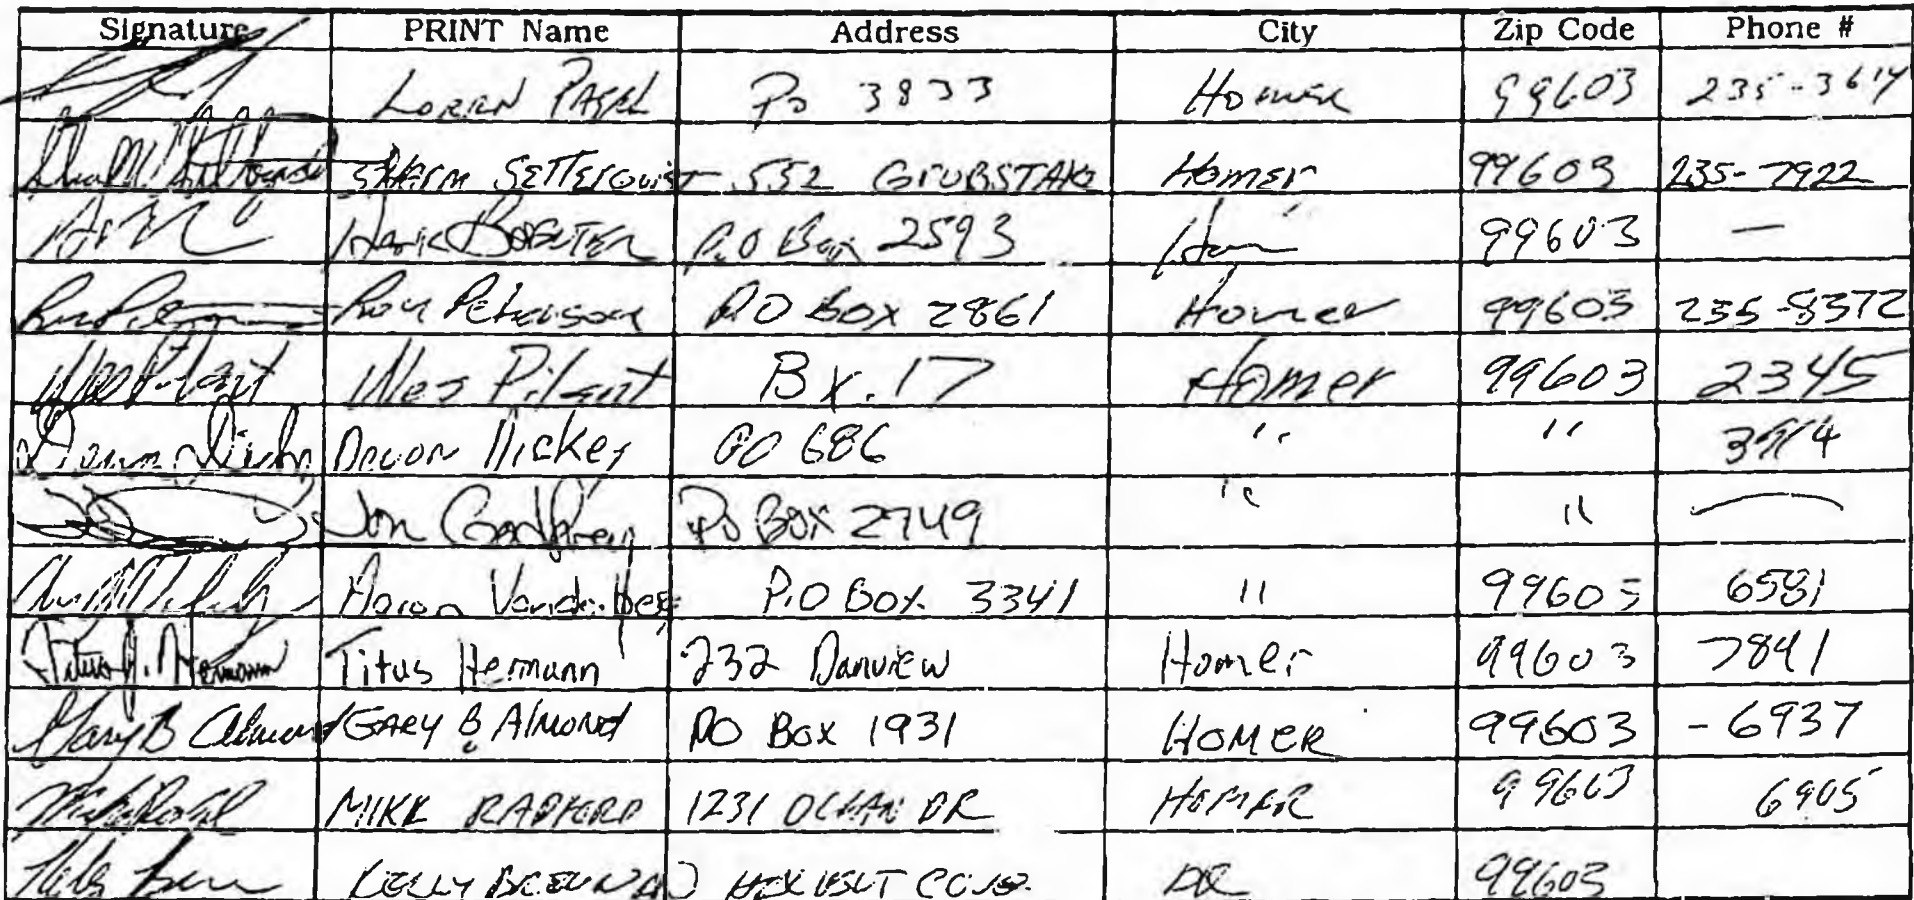 Signature PRINT Name Address City Zip Code Phone #
LOREN PAGEL Po 3833 Homer 99603 235-3614
SHERM SETTERQUIST 552 GRUBSTAKE Homer 99603 235-7922
P.O Box 2593 Hom 99603 —
Ron Peterson PO Box 2861 Homer 99603 235-8372
Wes Pilant Bx. 17 Homer 99603 2345
Devon PO 686 " " 3914
Jon Godfrey Po Box 2749 " " —
Aaron P.O Box 3341 " 99603 6581
Titus J. Hermann Titus Hermann 232 Danview Homer 99603 7841
Gary B Almond GARY B ALMOND PO Box 1931 HOMER 99603 - 6937
MIKE RADFORD 1231 OCEAN DR HOMER 99603 6905
KELLY 99603